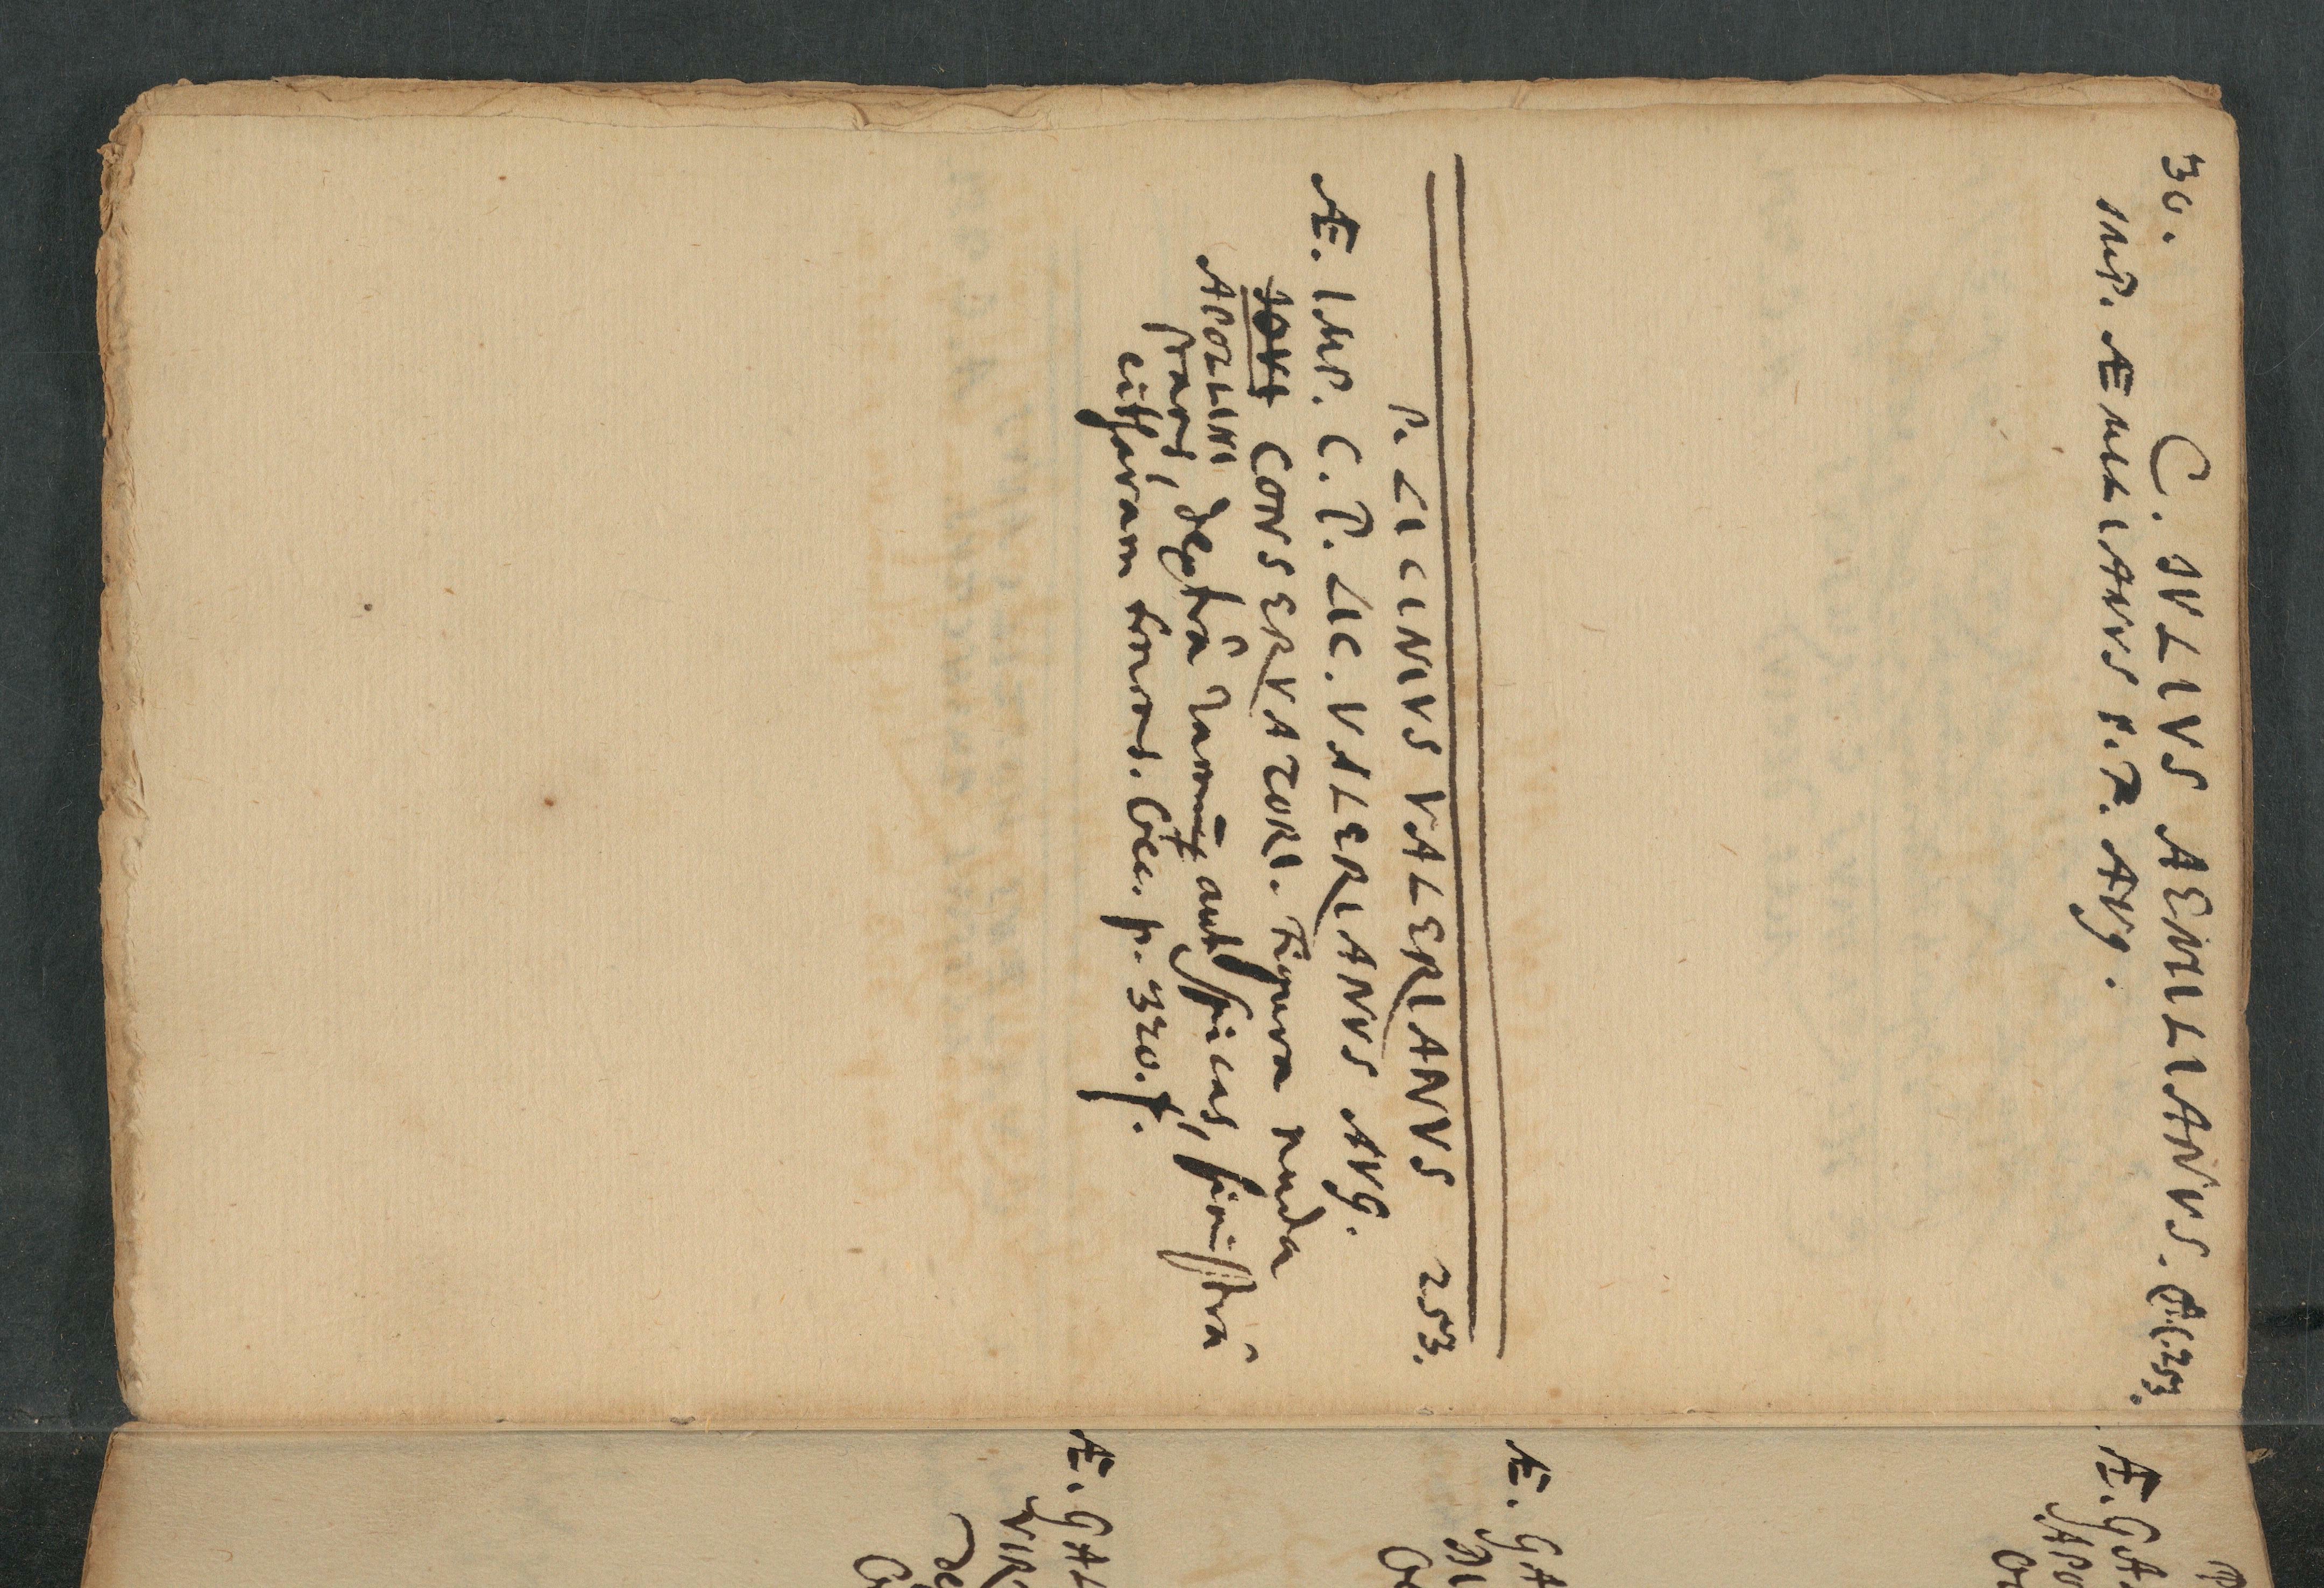 36.
C. IVLIVS AEMILIANVS. 253.
IMP. ÆMILIANVS P. F. AVG.
P. LICINIVS VALERIANVS 253.
Æ. IMP. C. P. LIC. VALERIANVS AVG.
IOVI CONSERVATORI. Figura nuda
APOLLINI
stans, dextrâ ramum aut spicas, sinistrâ
citharam tenens. Occ. p. 320. f.
Æ. GA
APO
Æ. GA
Æ. GAL
VIR